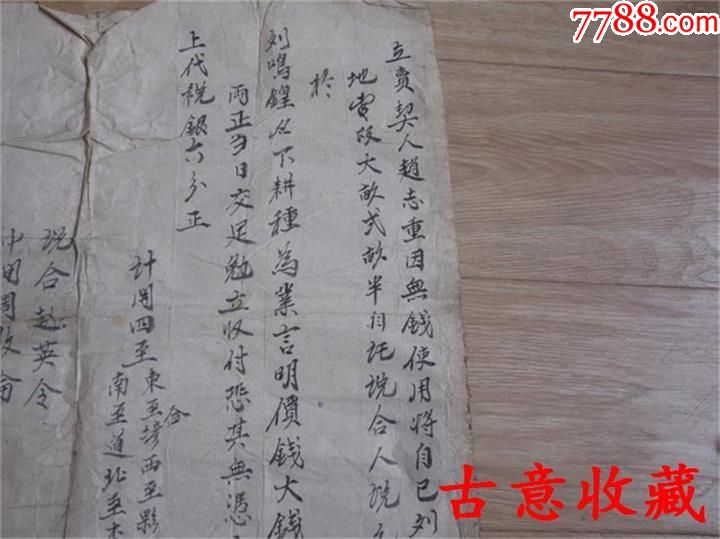 立賣契人趙志重因無錢使用將自己刘
地壹段大畝弍畝半自託说合人说
於
刘鳴鐘名下耕種為業言明價錢大錢
両正当日交足勉立收付恐其無憑
上代税銀六分正
计開四至東至 西至
合
南至道北至
说合趙英令
中用周
7788.com
古意收藏